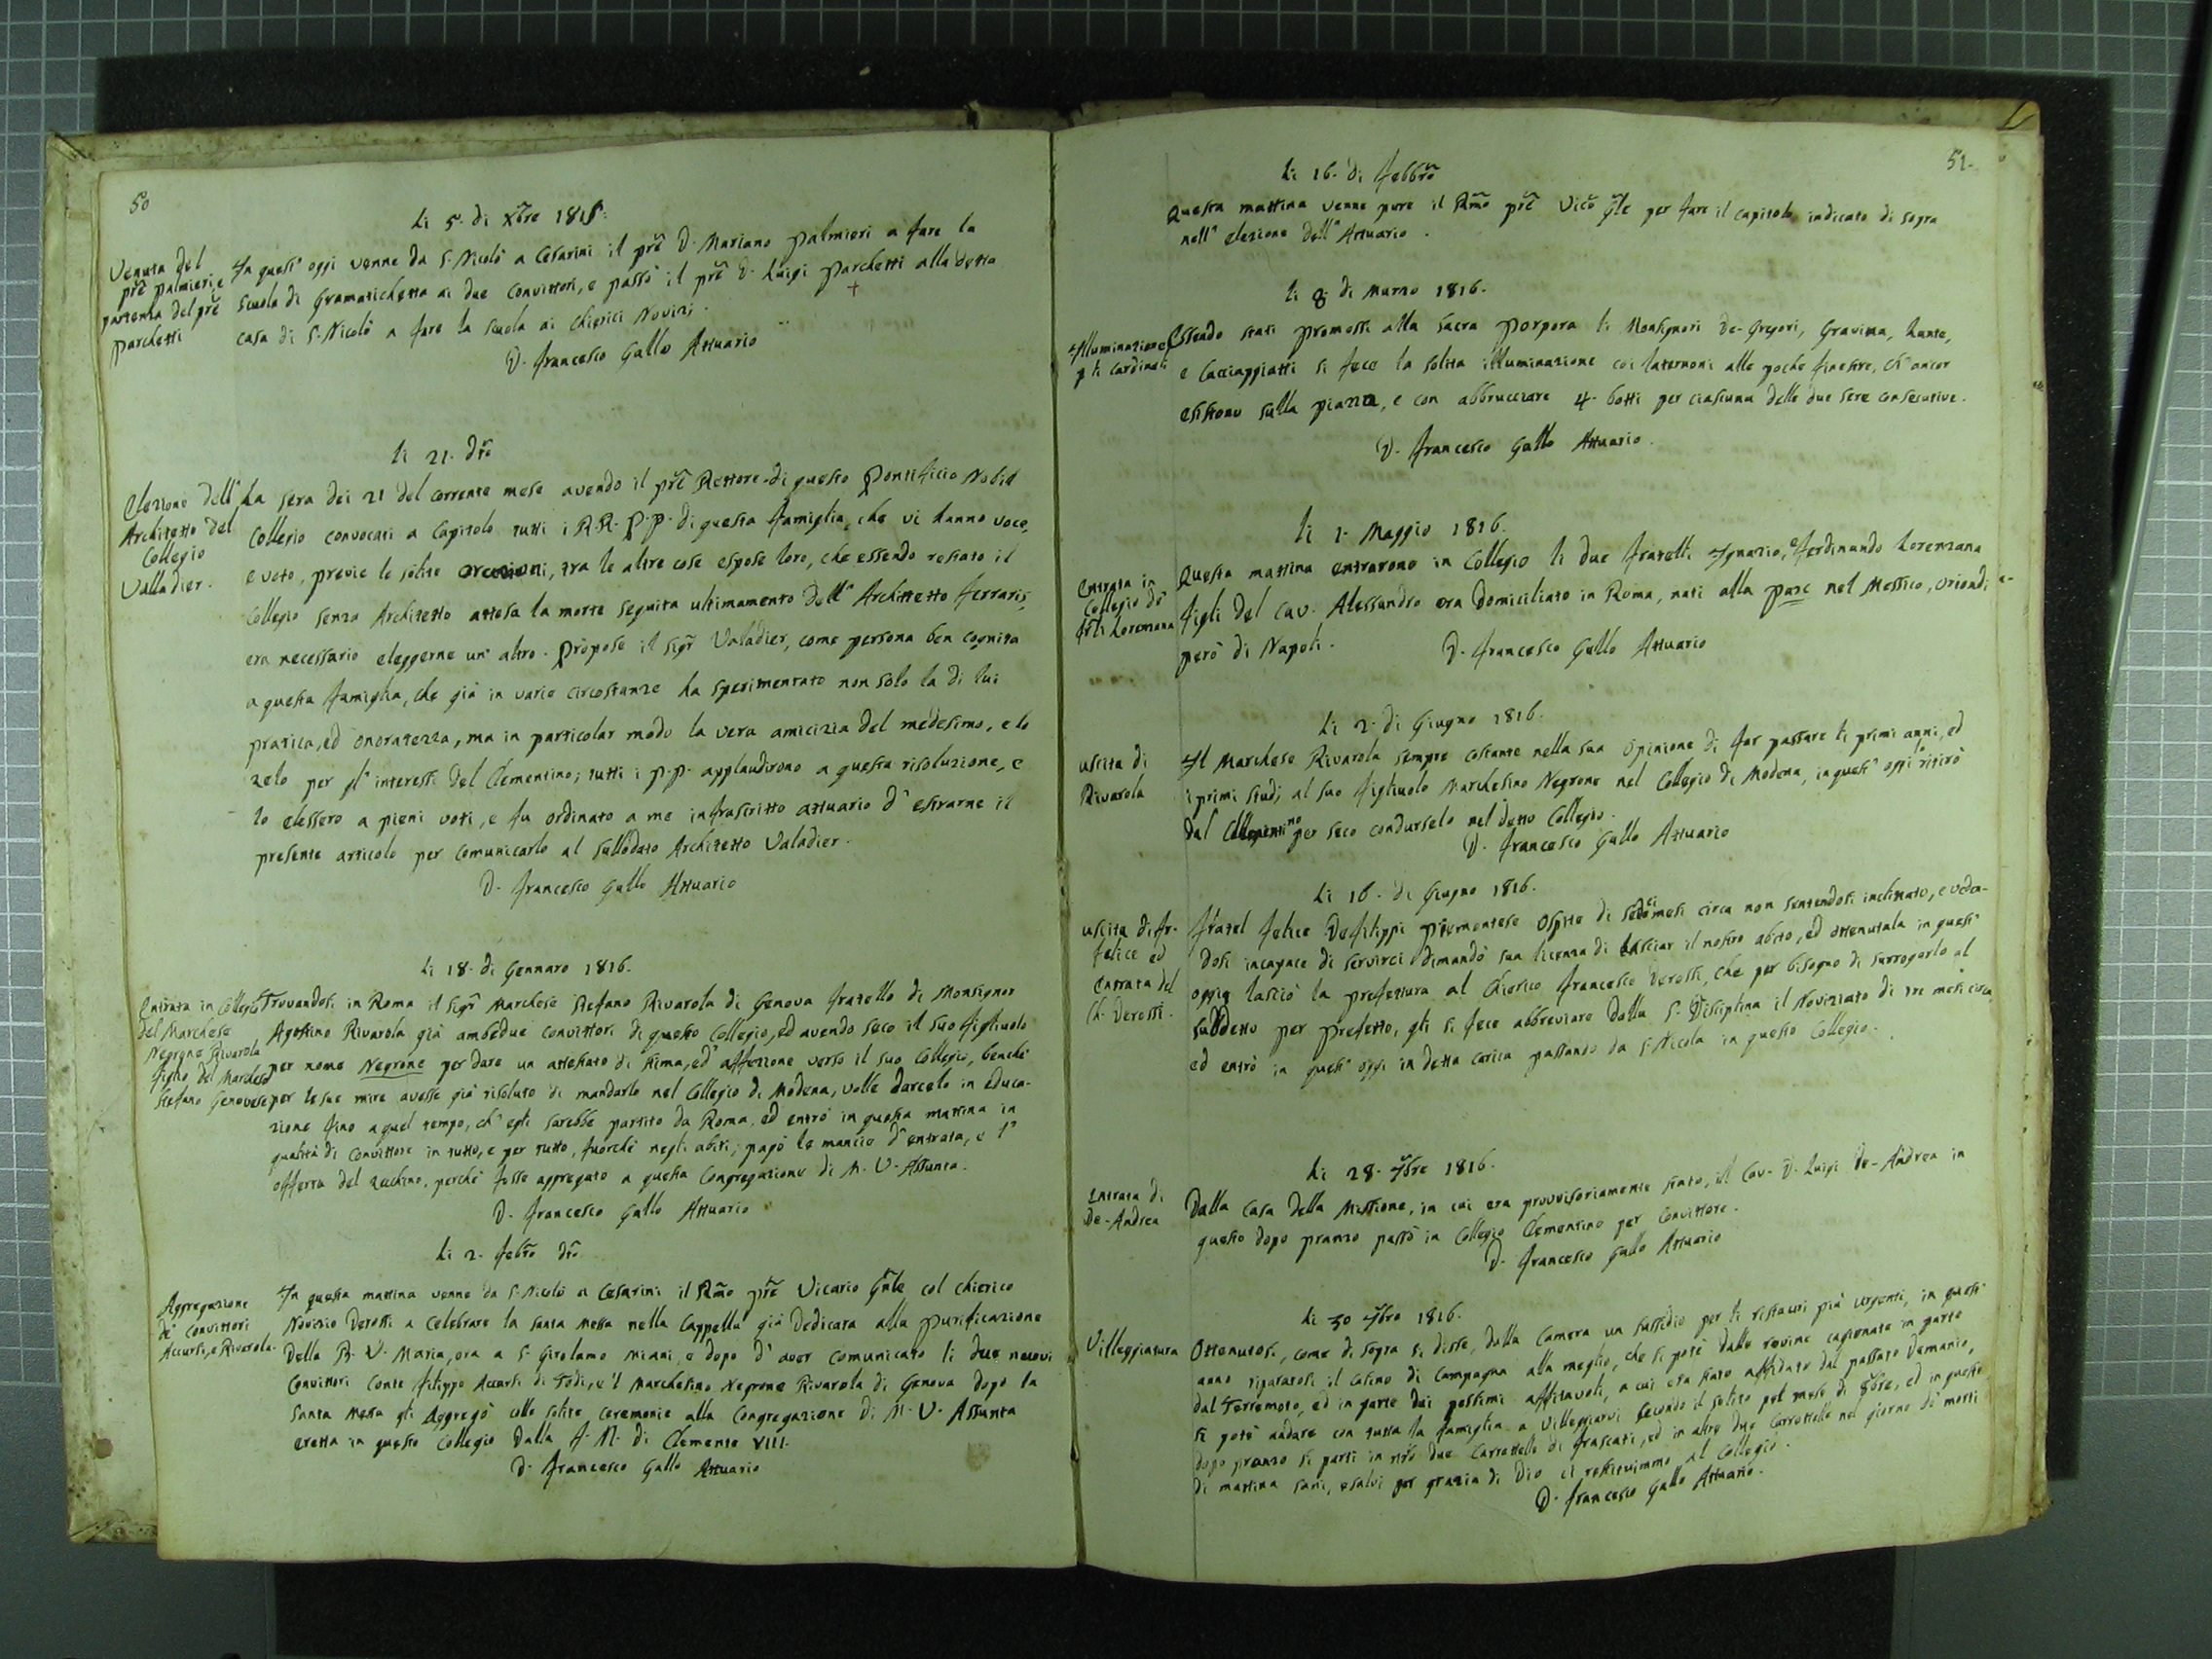 50
Li 5. di Xbre 1815.
Venuta del
pre Palmieri, e
partenza del pre
Parchetti
In quest' oggi venne da S. Nicolò a Cesarini il pre D. Mariano Palmieri a fare la
scuola di Gramatichetta ai due Convittori, e passò il pre D. Luigi Parchetti alla detta
casa di S. Nicolò a fare la scuola ai Chierici Novizj.
+
D. Francesco Gallo Attuario
li 21. dto
Elezione dell'
Architetto del
Collegio
Valladier.
La sera dei 21 del corrente mese avendo il pre Rettore di questo Pontificio Nobile
Collegio convocati a Capitolo tutti i RR. P.P. di questa famiglia, che vi hanno voce,
e voto, previe le solite orazioni, tra le altre cose espose loro, che essendo restato il
Collegio senza Architetto attesa la morte seguita ultimamente dell' Architetto Ferraris,
era necessario eleggerne un' altro. Propose il sigr Valadier, come persona ben cognita
a questa famiglia, che già in varie circostanze ha sperimentato non solo la di lui
pratica, ed onoratezza, ma in particolar modo la vera amicizia del medesimo, e lo
zelo per gl' interessi del Clementino; tutti i P.P. applaudirono a questa risoluzione, e
lo elessero a pieni voti, e fu ordinato a me infrascritto attuario d' estrarne il
presente articolo per comunicarlo al sullodato Architetto Valadier.
D. Francesco Gallo Attuario
Li 18. di Gennaro 1816.
Entrata in Collegio
del Marchese
Negrone Rivarola
figlio del Marchese
Stefano Genovese
Trovandosi in Roma il sigr Marchese Stefano Rivarola di Genova fratello di Monsignor
Agostino Rivarola già ambedue convittori di questo Collegio, ed avendo seco il suo figliuolo
per nome Negrone per dare un attestato di stima, ed' affezione verso il suo Collegio, benchè
per le sue mire avesse già risoluto di mandarlo nel Collegio di Modena, volle darcelo in educa-
zione fino a quel tempo, ch' egli sarebbe partito da Roma, ed entrò in questa mattina in
qualità di Convittore in tutto, e per tutto, fuorchè negli abiti; pagò le mancie d' entrata, e l'
offerta del zecchino, perchè fosse aggregato a questa Congregazione di M. V. Assunta.
D. Francesco Gallo Attuario
Li 2. Febro dto
Aggregazione
di Convittori
Accursi, e Rivarola.
In questa mattina venne da S. Nicolò a Cesarini il Rmo pre Vicario Gnle col Chierico
Novizio Derossi a celebrare la Santa Messa nella Cappella già dedicata alla Purificazione
della B. V. Maria, ora a S. Girolamo Miani, e dopo d' aver comunicato li due nuovi
Convittori Conte Filippo Accursi di Todi, e 'l Marchesino Negrone Rivarola di Genova dopo la
Santa Messa gli Aggregò colle solite ceremonie alla Congregazione di M. V. Assunta
eretta in questo Collegio dalla f. M. di Clemente VIII.
D. Francesco Gallo Attuario
51.
Li 16. di Febbro
Questa mattina venne pure il Rmo pre Vico Gle per fare il capitolo indicato di sopra
nell' elezione dell' Attuario.
li 8. di Marzo 1816.
Illuminazione
p li Cardinali
Essendo stati promossi alla sacra Porpora li Monsignori De-Gregori, Gravina, Lante,
e Cacciapiatti si fece la solita illuminazione coi lanternoni alle poche finestre, ch' ancor
esistono sulla piazza, e con abbrucciare 4. botti per ciascuna delle due sere consecutive.
D. Francesco Gallo Attuario.
li 1. Maggio 1816.
Entrata in
Collegio de'
frlli Lorenzana
Questa mattina entrarono in Collegio li due fratelli Ignazio, e Ferdinando Lorenzana
figli del Cav. Alessandro ora domiciliato in Roma, nati alla Paxe nel Messico, oriondi
però di Napoli.
D. Francesco Gallo Attuario
Li 2. di Giugno 1816.
uscita di
Rivarola
Il Marchese Rivarola sempre costante nella sua opinione di far passare li primi anni, ed
i primi studj al suo figliuolo Marchesino Negrone nel Collegio di Modena, in quest' oggi lo ritirò
dal Clementino per seco condurselo nel detto Collegio.
D. Francesco Gallo Attuario
Li 16. di Giugno 1816.
uscita di fr.
Felice ed
Entrata del
Ch. Derossi.
Fratel Felice Defilippi Piemontese Ospite di sedici mesi circa non sentendosi inclinato, e veden-
dosi incapace di servirci dimandò sua licenza di lasciar il nostro abito, ed ottenutala in quest'
oggi lasciò la prefettura al Chierico Francesco Derossi, che per bisogno di surrogarlo al
suddetto per prefetto, gli si fece abbreviare dalla S. Disciplina il Noviziato di tre mesi circa
ed entrò in quest' oggi in detta carica passando da S. Nicola in questo Collegio.
Li 28. 7bre 1816.
Entrata di
De-Andrea
Dalla Casa della Missione, in cui era provvisoriamente stato, il Cav. D. Luigi De-Andrea in
questo dopo pranzo passò in Collegio Clementino per Convittore.
D. Francesco Gallo Attuario
Li 30 7bre 1816.
Villeggiatura
Ottenutosi, come di sopra si disse, dalla Camera un sussidio per li ristauri più urgenti, in quest'
anno riparatosi il Casino di Campagna alla meglio, che si potè dalle rovine cagionate in parte
dal Terremoto, ed in parte dai pessimi affittavoli, a cui era stato affidato dal passato Demanio,
si potè andare con tutta la famiglia a villeggiarvi secondo il solito pel mese di 8bre, ed in questo
dopo pranzo si partì in due Carrettelle di Frascati, ed in altre due Carrettelle nel giorno de' morti
di mattina sani, e salvi per grazia di Dio ci restituimmo al Collegio.
D. Francesco Gallo Attuario.